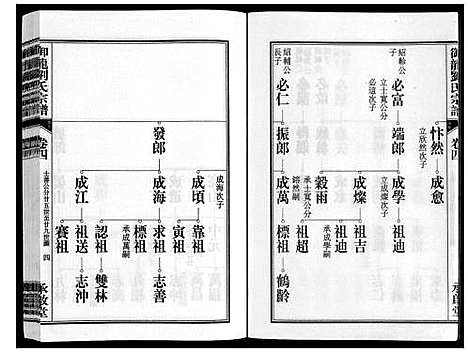 御龍劉氏宗譜
卷四
承啟堂
忭然
立欣然次子
成愈
紹幹公次子
必富
立士寬公分
必義次子
端郎
成學
祖迪
立成燦次子
成燦
祖吉
祖迪
承成學嗣
穀雨
承士寬公分
鎔然嗣
祖超
紹輔公長子
必仁
振郎
成萬
標祖
鶴齡
成海次子
成頃
靠祖
寅祖
標祖
承成萬嗣
發郎
成海
求祖
志善
認祖
雙林
成江
祖送
志沖
賽祖
御龍劉氏宗譜
卷四
廿五世至廿九世圖 四
承啟堂